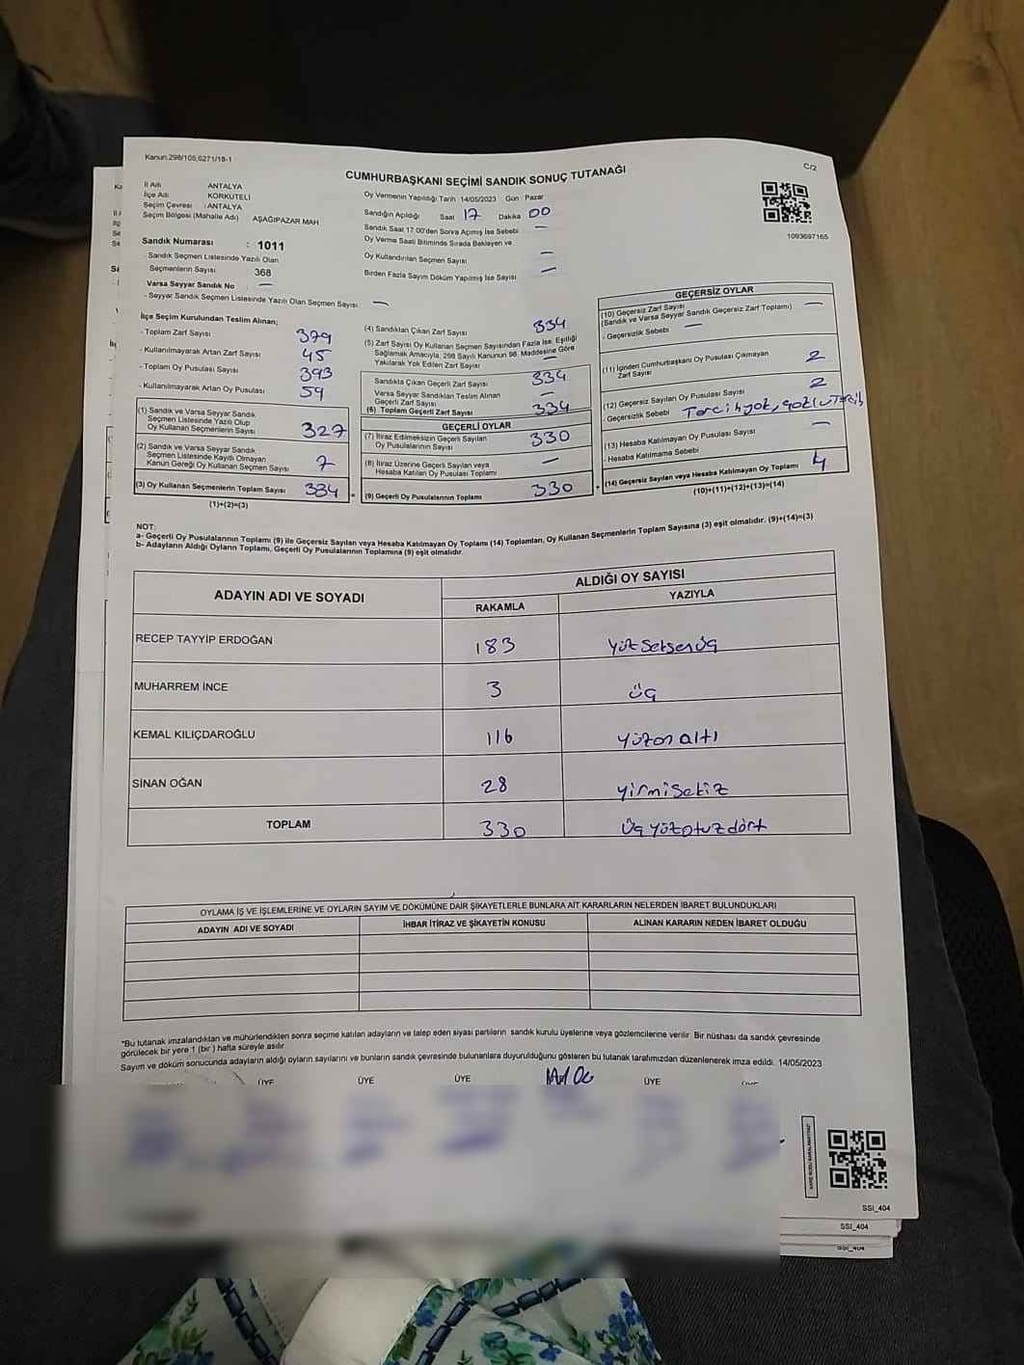 Kanun.298/105,6271/18-1
C/2
CUMHURBAŞKANI SEÇİMİ SANDIK SONUÇ TUTANAĞI
1093697165
İl Adı ANTALYA
İlçe Adı KORKUTELİ
Seçim Çevresi : ANTALYA
Seçim Bölgesi (Mahalle Adı) AŞAĞIPAZAR MAH
Sandık Numarası : 1011
- Sandık Seçmen Listesinde Yazılı Olan
Seçmenlerin Sayısı 368
Varsa Seyyar Sandık No —
- Seyyar Sandık Seçmen Listesinde Yazılı Olan Seçmen Sayısı —
Oy Vermenin Yapıldığı Tarih 14/05/2023 Gün Pazar
Sandığın Açıldığı Saat 17 Dakika 00
Sandık Saat 17:00'den Sonra Açılmış İse Sebebi —
Oy Verme Saati Bitiminde Sırada Bekleyen ve
Oy Kullandırılan Seçmen Sayısı —
Birden Fazla Sayım Döküm Yapılmış İse Sayısı —
İlçe Seçim Kurulundan Teslim Alınan;
- Toplam Zarf Sayısı 379
- Kullanılmayarak Artan Zarf Sayısı 45
- Toplam Oy Pusulası Sayısı 393
- Kullanılmayarak Artan Oy Pusulası 59
(1) Sandık ve Varsa Seyyar Sandık
Seçmen Listesinde Yazılı Olup
Oy Kullanan Seçmenlerin Sayısı 327
(2) Sandık ve Varsa Seyyar Sandık
Seçmen Listesinde Kayıtlı Olmayan
Kanun Gereği Oy Kullanan Seçmen Sayısı 7
(3) Oy Kullanan Seçmenlerin Toplam Sayısı 334
(1)+(2)=(3)
(4) Sandıktan Çıkan Zarf Sayısı 334
(5) Zarf Sayısı Oy Kullanan Seçmen Sayısından Fazla İse, Eşitliği
Sağlamak Amacıyla, 298 Sayılı Kanunun 98. Maddesine Göre
Yakılarak Yok Edilen Zarf Sayısı —
Sandıkta Çıkan Geçerli Zarf Sayısı 334
Varsa Seyyar Sandıktan Teslim Alınan
Geçerli Zarf Sayısı —
(6) Toplam Geçerli Zarf Sayısı 334
GEÇERLİ OYLAR
(7) İtiraz Edilmeksizin Geçerli Sayılan
Oy Pusulalarının Sayısı 330
(8) İtiraz Üzerine Geçerli Sayılan veya
Hesaba Katılan Oy Pusulası Toplamı —
(9) Geçerli Oy Pusulalarının Toplamı 330
GEÇERSİZ OYLAR
(10) Geçersiz Zarf Sayısı
(Sandık ve Varsa Seyyar Sandık Geçersiz Zarf Toplamı) —
- Geçersizlik Sebebi —
(11) İçinden Cumhurbaşkanı Oy Pusulası Çıkmayan
Zarf Sayısı 2
(12) Geçersiz Sayılan Oy Pusulası Sayısı 2
- Geçersizlik Sebebi Tercih yok,
(13) Hesaba Katılmayan Oy Pusulası Sayısı —
- Hesaba Katılmama Sebebi
(14) Geçersiz Sayılan veya Hesaba Katılmayan Oy Toplamı 4
(10)+(11)+(12)+(13)=(14)
NOT:
a- Geçerli Oy Pusulalarının Toplamı (9) ile Geçersiz Sayılan veya Hesaba Katılmayan Oy Toplamı (14) Toplamları, Oy Kullanan Seçmenlerin Toplam Sayısına (3) eşit olmalıdır. (9)+(14)=(3)
b- Adayların Aldığı Oyların Toplamı, Geçerli Oy Pusulalarının Toplamına (9) eşit olmalıdır.
ADAYIN ADI VE SOYADI ALDIĞI OY SAYISI
RAKAMLA YAZIYLA
RECEP TAYYİP ERDOĞAN 183 yüz seksenüç
MUHARREM İNCE 3 üç
KEMAL KILIÇDAROĞLU 116 yüzon altı
SİNAN OĞAN 28 yirmisekiz
TOPLAM 330 üçyüzotuzdört
OYLAMA İŞ VE İŞLEMLERİNE VE OYLARIN SAYIM VE DÖKÜMÜNE DAİR ŞİKAYETLERLE BUNLARA AİT KARARLARIN NELERDEN İBARET BULUNDUKLARI
ADAYIN ADI VE SOYADI İHBAR İTİRAZ VE ŞİKAYETİN KONUSU ALINAN KARARIN NEDEN İBARET OLDUĞU
*Bu tutanak imzalandıktan ve mühürlendikten sonra seçime katılan adayların ve talep eden siyasi partilerin sandık kurulu üyelerine veya gözlemcilerine verilir. Bir nüshası da sandık çevresinde
görülecek bir yere 1 (bir ) hafta süreyle asılır.
Sayım ve döküm sonucunda adayların aldığı oyların sayılarını ve bunların sandık çevresinde bulunanlara duyurulduğunu gösteren bu tutanak tarafımızdan düzenlenerek imza edildi. 14/05/2023
ÜYE ÜYE ÜYE ÜYE
SSI_404
SSI_404
SSI_404